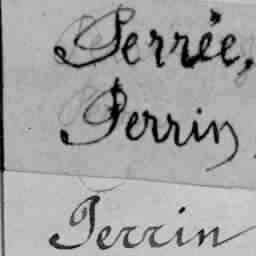 Perrée,
Perrin
Perrin